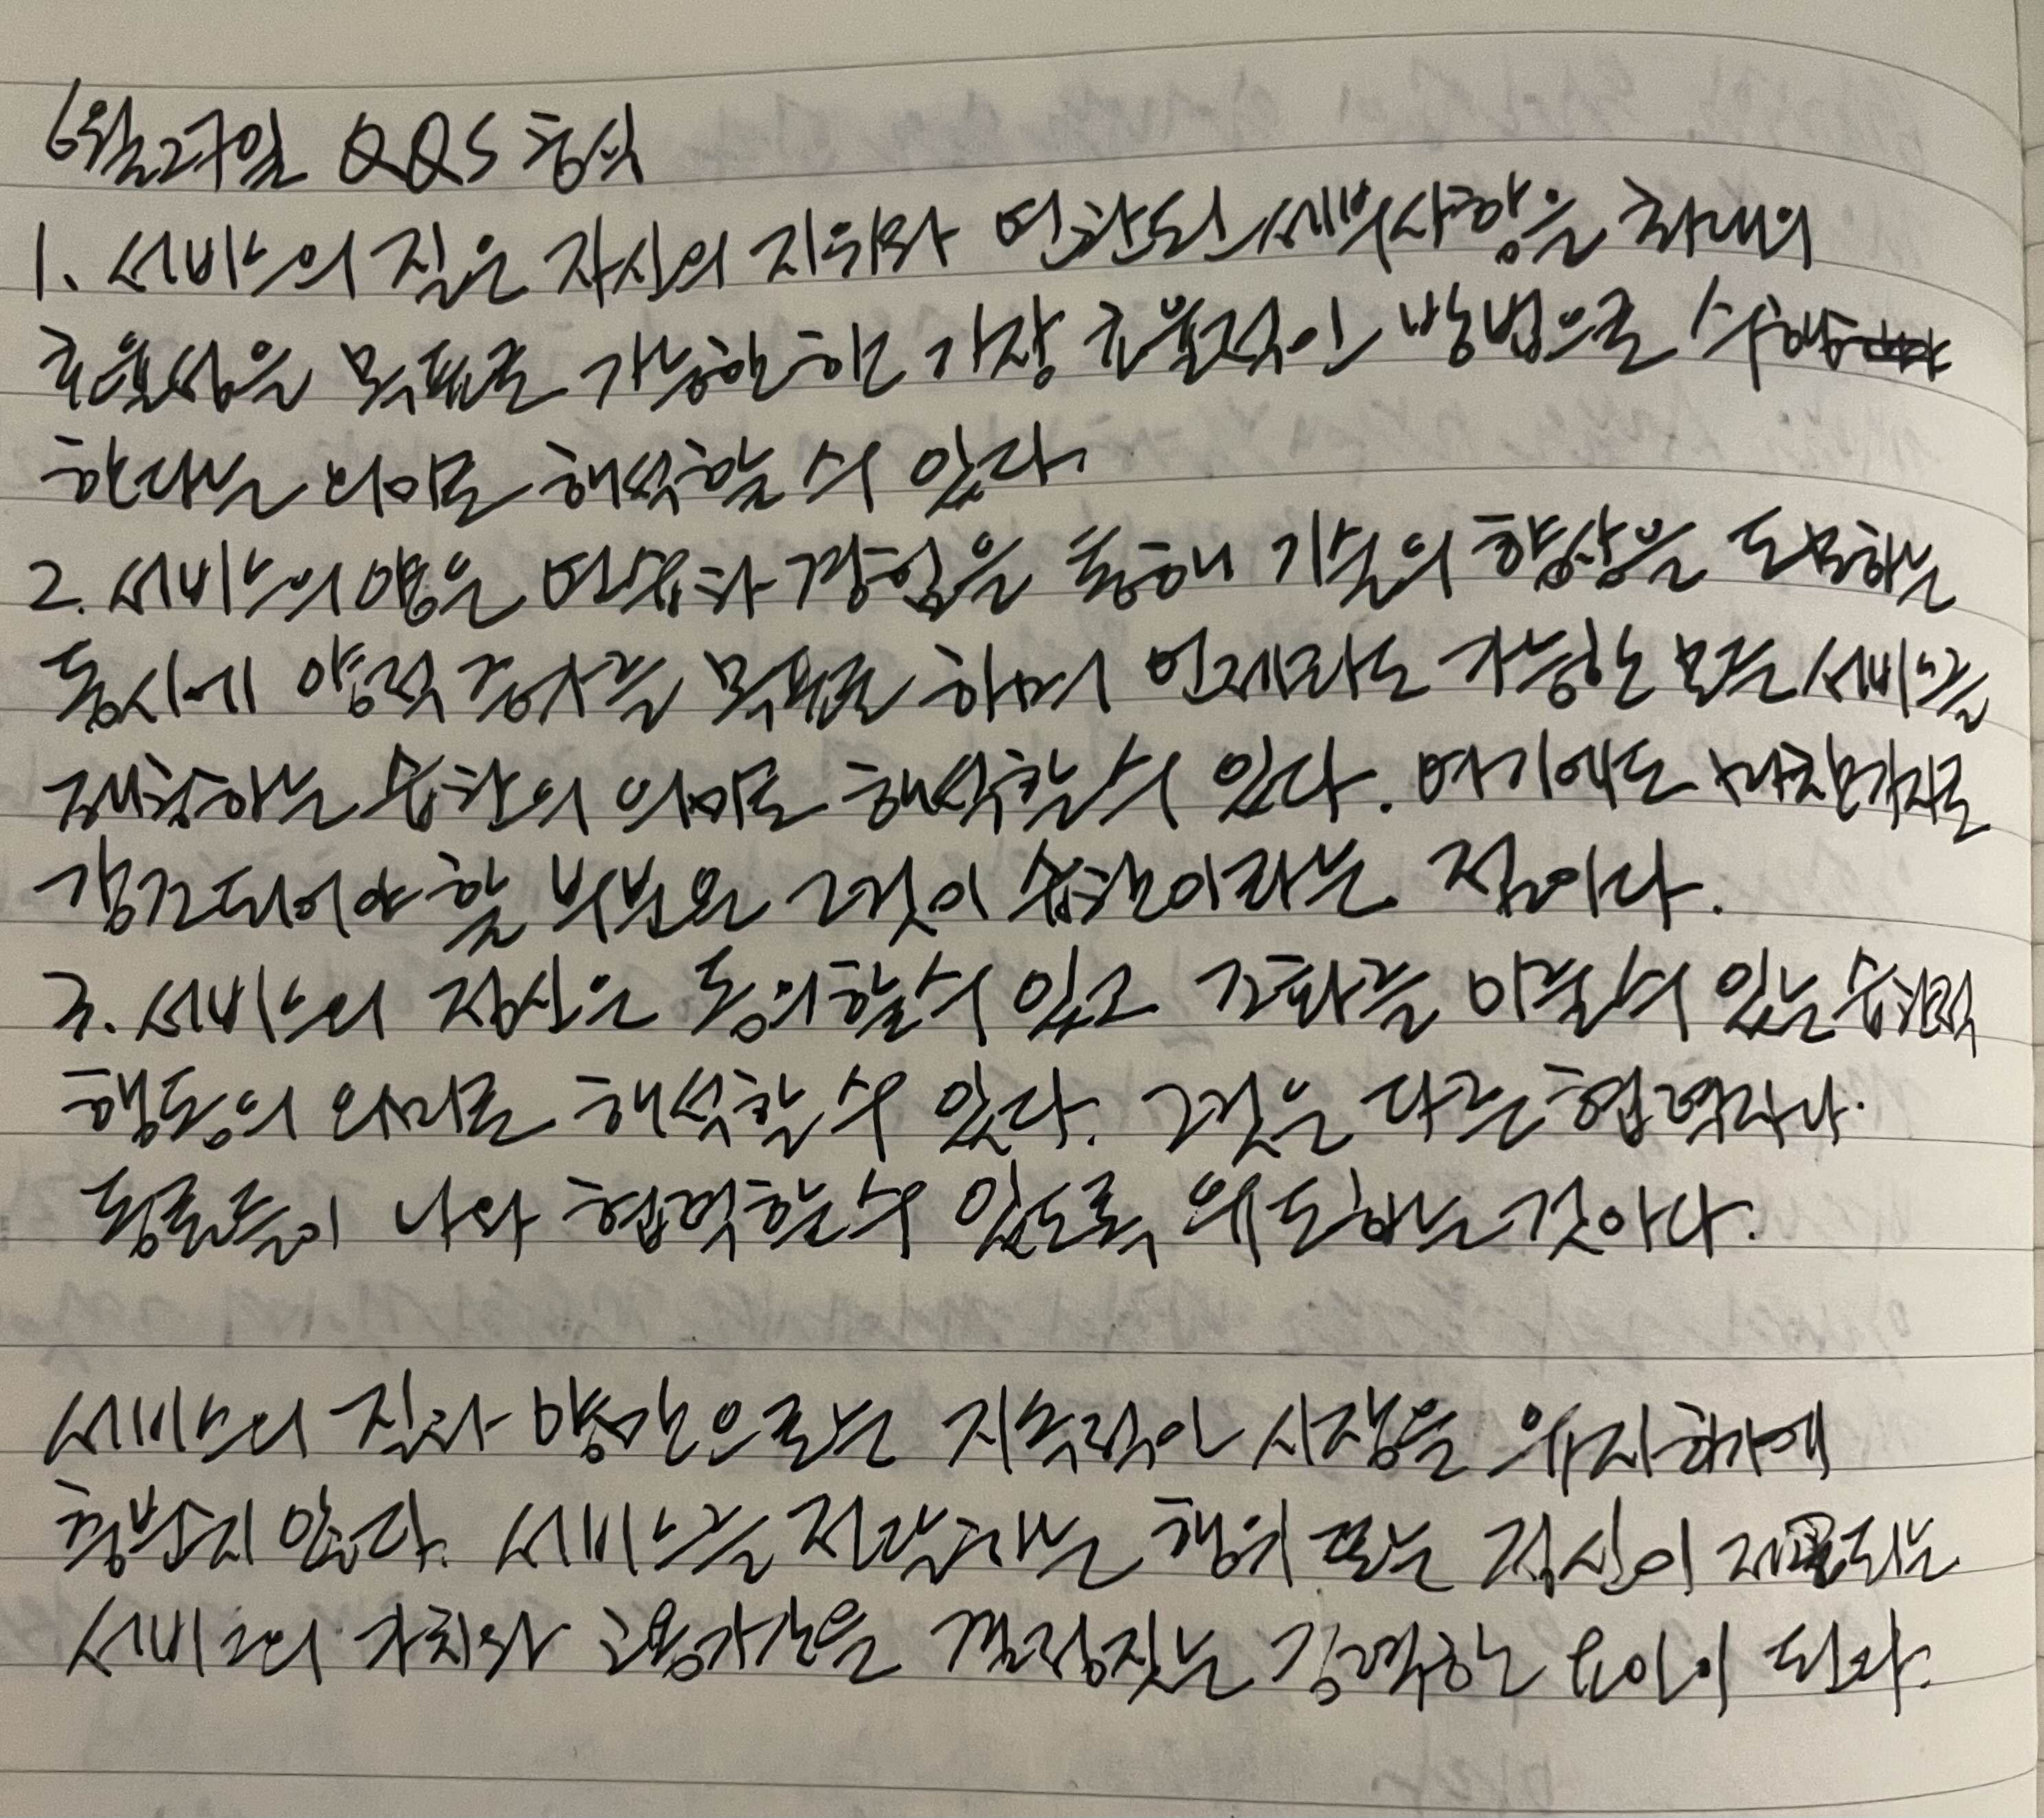 6월27일 QQS 형식
1. 서비스의 질은 자신의 지위와 연관된 세부사항을 최대의
효율성을 목표로 가능한한 가장 효율적인 방법으로 수행
한다는 의미로 해석할 수 있다.
2. 서비스의 양은 연습과 경험을 통해 기술의 향상을 도모하는
동시에 양적 증가를 목표로 하며 언제라도 가능한 모든 서비스를
제공하는 습관의 의미로 해석할 수 있다. 여기에도 마찬가지로
강조되어야 할 부분은 그것이 습관이라는 점이다.
3. 서비스의 정신은 동의할 수 있고 조화를 이룰 수 있는 습관적
행동의 의미로 해석할 수 있다. 그것은 다른 협력자나
동료들이 나와 협력할 수 있도록 유도하는 것이다.
서비스의 질과 양만으로는 지속적인 시장을 유지하기에
충분치 않다. 서비스를 전달하는 행위 또는 정신이 제공되는
서비스의 가치와 고용기간을 결정짓는 강력한 요인이 된다.